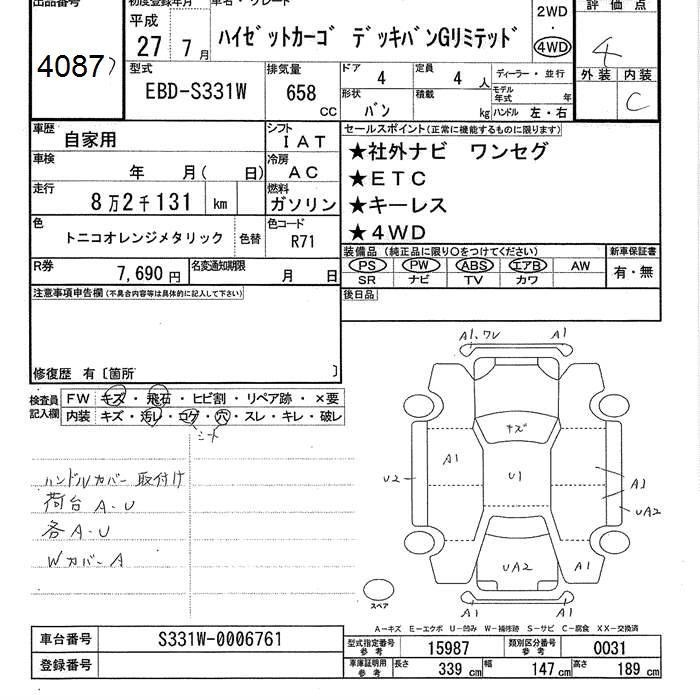 出品番号
4087
初度登録年月
平成
27 7月
車名・グレード
ハイゼットカーゴ デッキバンGリミテッド
2WD
・
4WD
評価点
4
外装 内装
C
型式
EBD-S331W
排気量
658
CC
ドア 4
定員 4 人
形状
バン
積載
kg
ディーラー・並行
モデル年式 年
ハンドル 左・右
車歴
自家用
シフト
IAT
車検
年 月( 日)
冷房
AC
走行
8万2千131 km
燃料
ガソリン
色
トニコオレンジメタリック
色替
色コード
R71
R券
7,690円
名変通知期限
月 日
セールスポイント(正常に機能するものに限ります)
★社外ナビ ワンセグ
★ETC
★キーレス
★4WD
装備品(純正品に限り○をつけてください)
PS PW ABS エアB AW
SR ナビ TV カワ
新車保証書
有・無
後日品
注意事項申告欄(不具合内容等は具体的に記入して下さい)
修復歴 有〔箇所 〕
検査員記入欄
FW キズ・飛石・ヒビ割・リペア跡・×要
内装 キズ・汚レ・コゲ・穴・スレ・キレ・破レ
シート
ハンドルカバー取付け
荷台 A.U
各A.U
WカバーA
A1.ワレ
A1
キズ
A1
U1
U2
A1
UA2
UA2
A1
A1
A1
スペア
A−キズ E−エクボ U−凹み W−補修跡 S−サビ C−腐食 XX−交換済
車台番号
S331W-0006761
登録番号
型式指定番号 参考
15987
類別区分番号 参考
0031
車庫証明用 参考
長さ 339 cm
幅 147 cm
高さ 189 cm